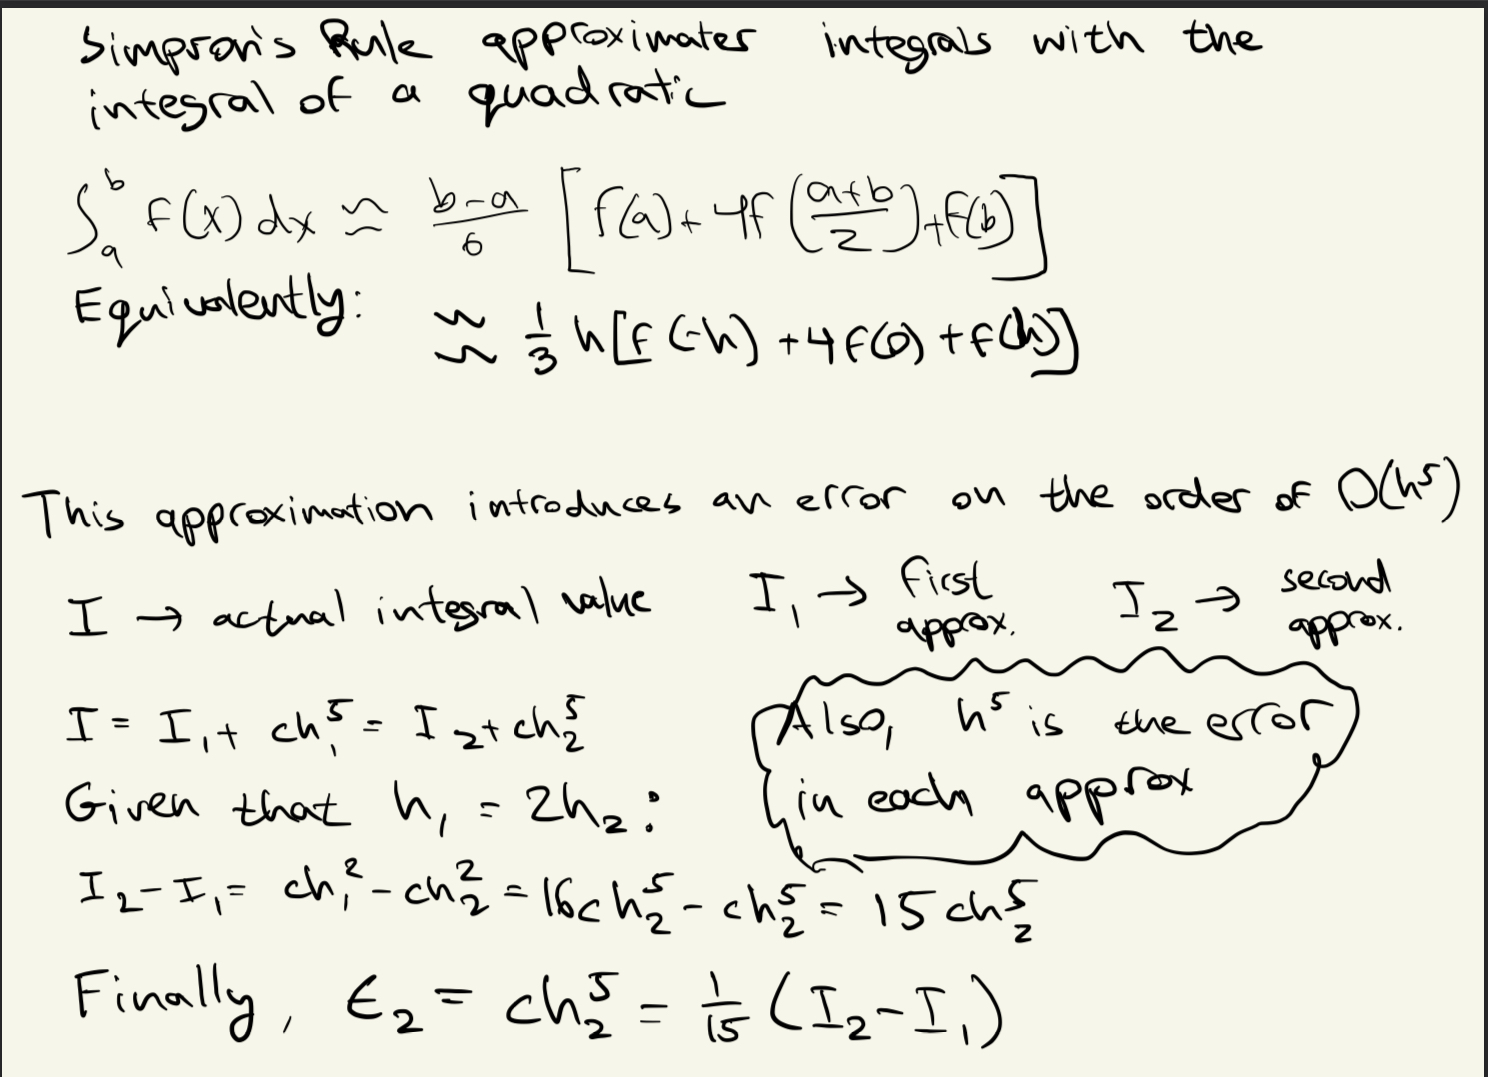 Simpson's Rule approximates integrals with the
integral of a quadratic
∫_a^b f(x) dx ≈ (b-a)/6 [f(a) + 4f((a+b)/2) + f(b)]
Equivalently: ≈ 1/3 h[f(-h) + 4f(0) + f(h)]
This approximation introduces an error on the order of O(h^5)
I → actual integral value I_1 → first approx. I_2 → second approx.
I = I_1 + ch_1^5 = I_2 + ch_2^5
Also, h^5 is the error
in each approx
Given that h_1 = 2h_2:
I_2 - I_1 = ch_1^2 - ch_2^2 = 16ch_2^5 - ch_2^5 = 15ch_2^5
Finally, ϵ_2 = ch_2^5 = 1/15 (I_2 - I_1)